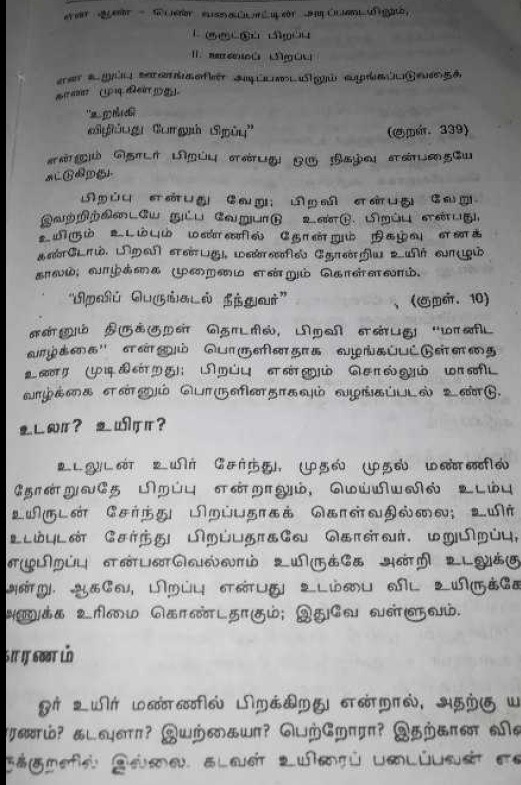 என ஆண் - பெண் வகைப்பாட்டின் அடிப்படையிலும்,
I. குருட்டுப் பிறப்பு
II. ஊமைப் பிறப்பு
என உறுப்பு ஊனங்களின் அடிப்படையிலும் வழங்கப்படுவதைக்
காண முடிகின்றது.
"உறங்கி
விழிப்பது போலும் பிறப்பு" (குறள். 339)
என்னும் தொடர் பிறப்பு என்பது ஒரு நிகழ்வு என்பதையே
சுட்டுகிறது.
பிறப்பு என்பது வேறு; பிறவி என்பது வேறு.
இவற்றிற்கிடையே நுட்ப வேறுபாடு உண்டு. பிறப்பு என்பது,
உயிரும் உடம்பும் மண்ணில் தோன்றும் நிகழ்வு எனக்
கண்டோம். பிறவி என்பது, மண்ணில் தோன்றிய உயிர் வாழும்
காலம்; வாழ்க்கை முறைமை என்றும் கொள்ளலாம்.
"பிறவிப் பெருங்கடல் நீந்துவர்" (குறள். 10)
என்னும் திருக்குறள் தொடரில், பிறவி என்பது "மானிட
வாழ்க்கை" என்னும் பொருளினதாக வழங்கப்பட்டுள்ளதை
உணர முடிகின்றது; பிறப்பு என்னும் சொல்லும் மானிட
வாழ்க்கை என்னும் பொருளினதாகவும் வழங்கப்படல் உண்டு.
உடலா? உயிரா?
உடலுடன் உயிர் சேர்ந்து, முதல் முதல் மண்ணில்
தோன்றுவதே பிறப்பு என்றாலும், மெய்யியலில் உடம்பு
உயிருடன் சேர்ந்து பிறப்பதாகக் கொள்வதில்லை; உயிர்
உடம்புடன் சேர்ந்து பிறப்பதாகவே கொள்வர். மறுபிறப்பு,
எழுபிறப்பு என்பனவெல்லாம் உயிருக்கே அன்றி உடலுக்கு
அன்று. ஆகவே, பிறப்பு என்பது உடம்பை விட உயிருக்கே
அணுக்க உரிமை கொண்டதாகும்; இதுவே வள்ளுவம்.
காரணம்
ஓர் உயிர் மண்ணில் பிறக்கிறது என்றால், அதற்கு
கடவுளா? இயற்கையா? பெற்றோரா? இதற்கான
இல்லை. கடவுள் உயிரைப் படைப்பவன்